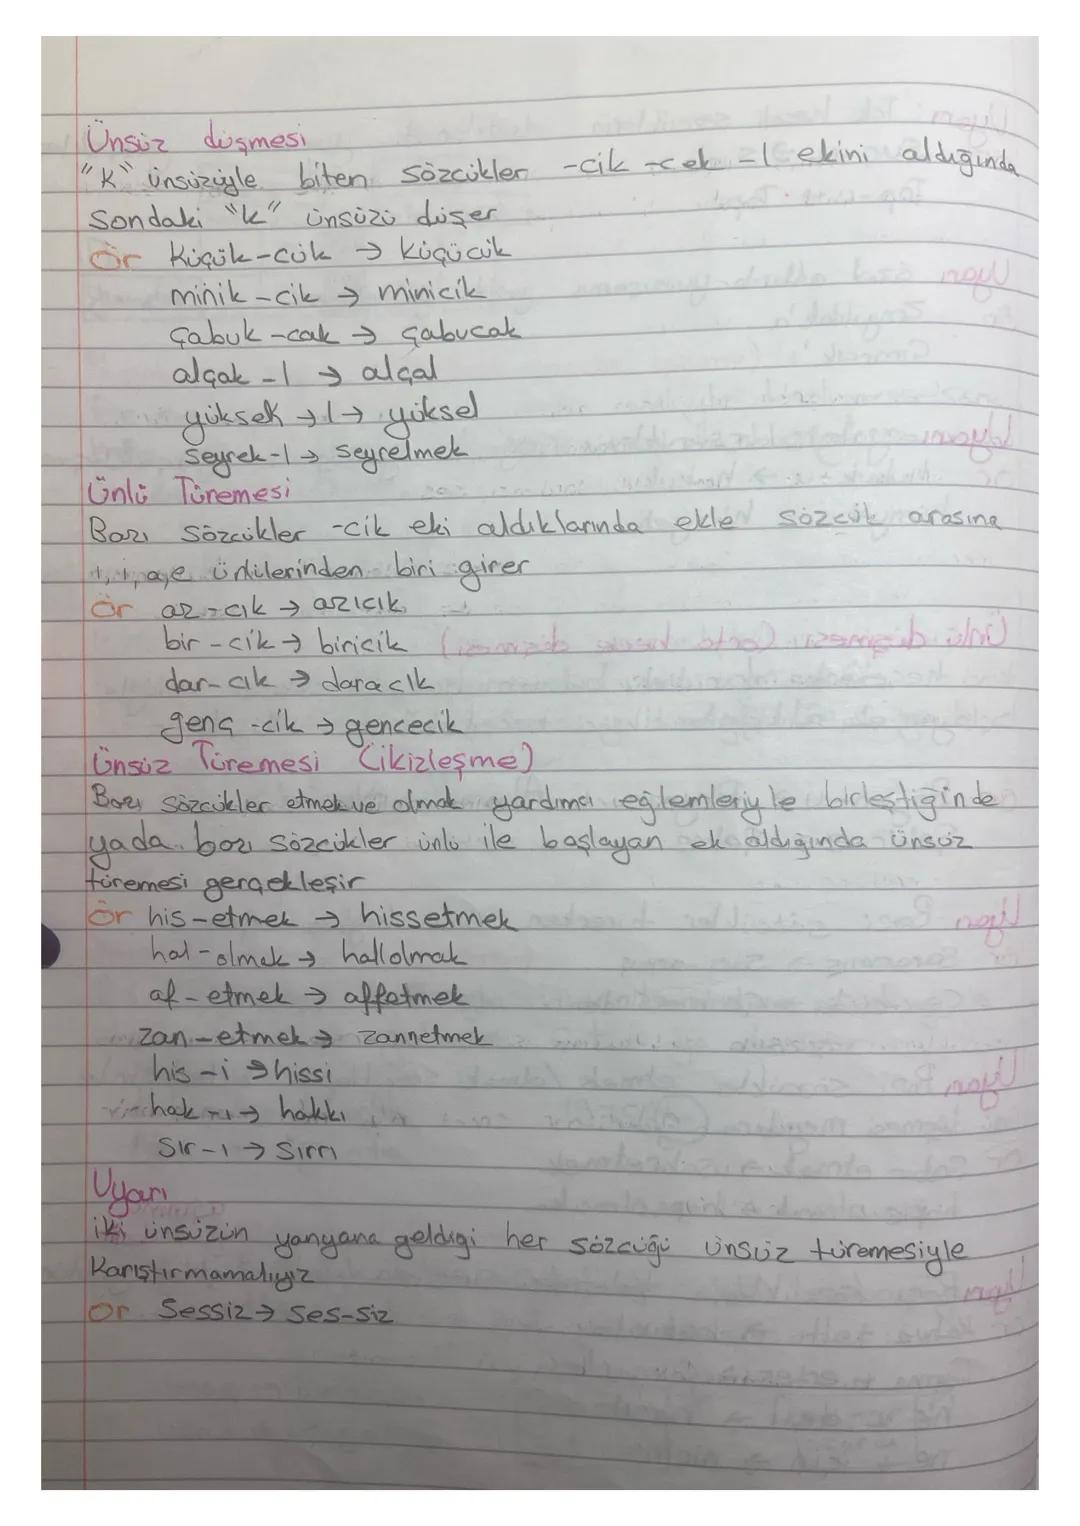 Ünsüz düşmesi
"K" ünsüzüyle biten sözcükler -cik -cek -l ekini aldığında
Sondaki "k" ünsüzü düşer
Ör küçük-cük → küçücük
minik-cik → minicik
çabuk-cak → çabucak
alçak-l → alçal
yüksek → l → yüksel
seyrek-l → seyrelmek
Ünlü Türemesi
Bazı sözcükler -cik eki aldıklarında ekle sözcük arasına
ı, i, a, e ünlülerinden biri girer
Ör az-cık → azıcık
bir-cik → biricik
dar-cık → daracık
genç-cik → gencecik
Ünsüz Türemesi (ikizleşme)
Bazı sözcükler etmek ve olmak yardımcı eylemleriyle birleştiğinde
yada bazı sözcükler ünlü ile başlayan ek aldığında ünsüz
türemesi gerçekleşir
Ör his-etmek → hissetmek
hal-olmak → hallolmak
af-etmek → affetmek
zan-etmek → zannetmek
his-i → hissi
hak-ı → hakkı
sır-ı → sırrı
Uyarı
iki ünsüzün yanyana geldigi her sözcüğü ünsüz türemesiyle
Karıştırmamalıyız
Ör Sessiz → Ses-siz